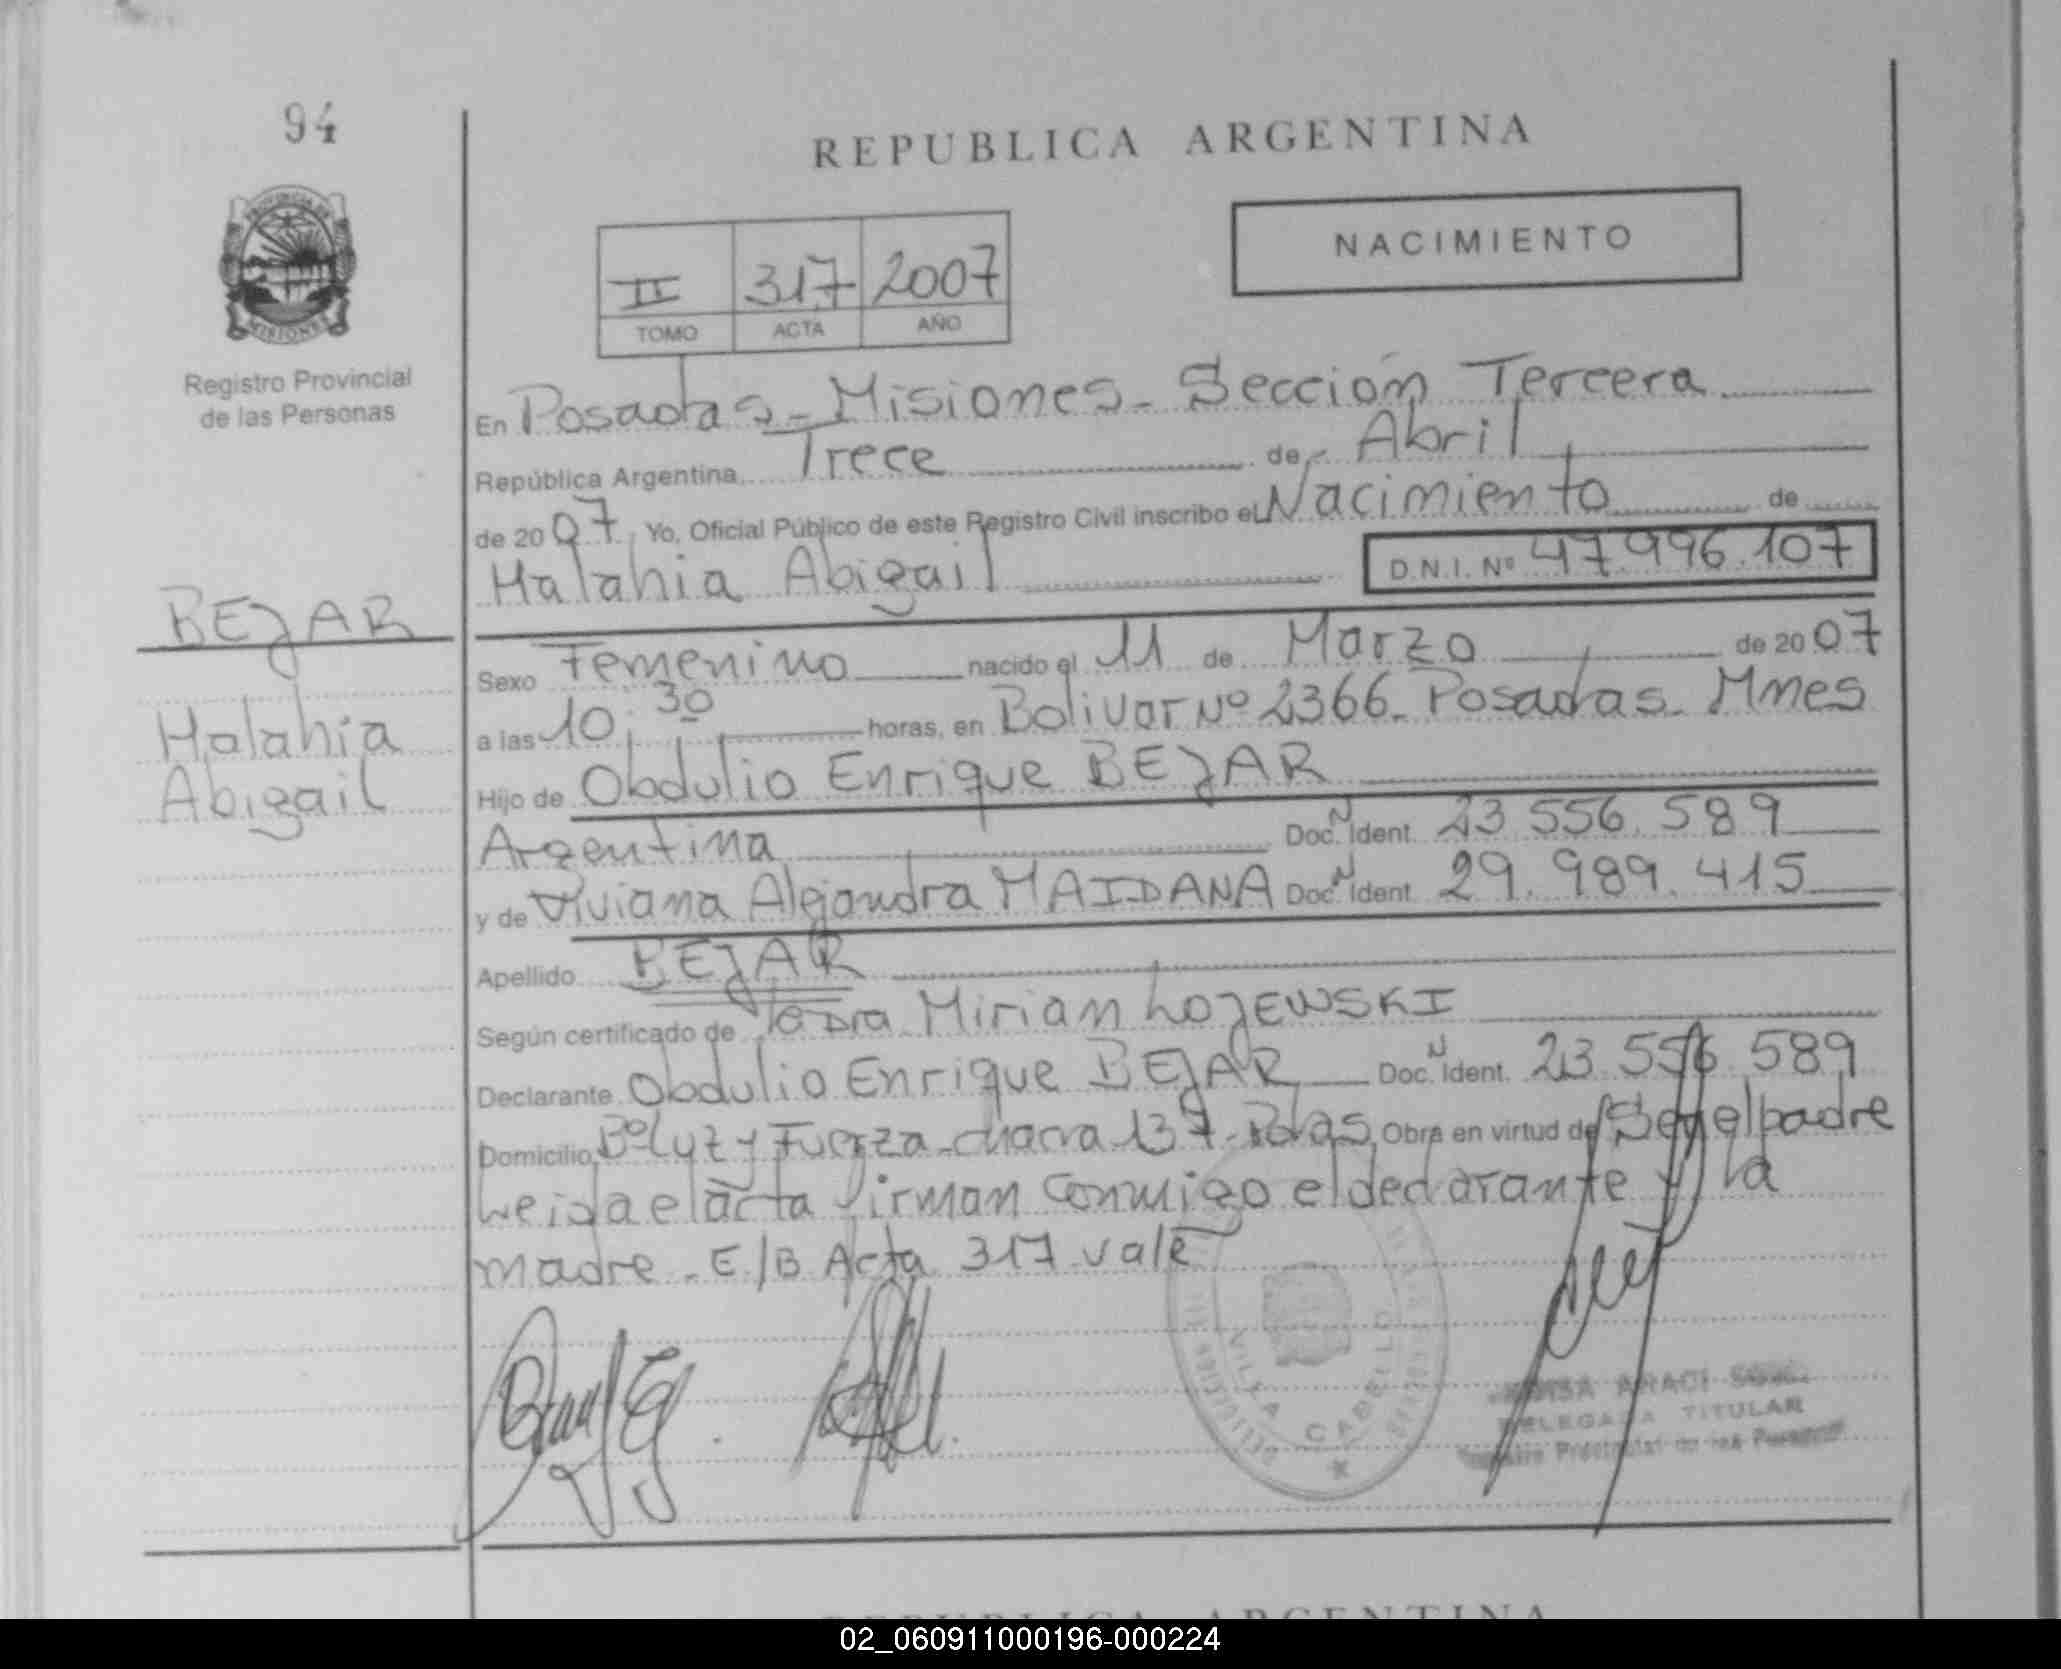 94
REPUBLICA ARGENTINA
PROVINCIA DE
MISIONES
NACIMIENTO
II 317 2007
TOMO ACTA AÑO
Registro Provincial
de las Personas
En Posadas - Misiones - Sección Tercera
República Argentina, Trece de Abril
de 2007, Yo, Oficial Público de este Registro Civil inscribo el Nacimiento de
Malahia Abigail D.N.I. Nº 47.996.107
BEJAR
Malahia
Abigail
Sexo Femenino nacido el 11 de Marzo de 2007
a las 10:30 horas, en Bolivar Nº 2366 - Posadas - Mnes
Hijo de Obdulio Enrique BEJAR
Argentina Doc. N Ident. 23.556.589
y de Viviana Alejandra MAIDANA Doc. N Ident. 29.989.415
Apellido BEJAR
Según certificado de la Dra Mirian LOJEWSKI
Declarante Obdulio Enrique BEJAR Doc. N Ident. 23.556.589
Domicilio Bº Luz y Fuerza - chacra 137 - Pdas, Obra en virtud de Ser el padre
Leida el acta firman conmigo el declarante y la
madre - E/B Acta 317 vale
VILLA CABELLO
ARACI
DELEGADA TITULAR
Registro Provincial de las Personas
REPUBLICA ARGENTINA
02_060911000196-000224